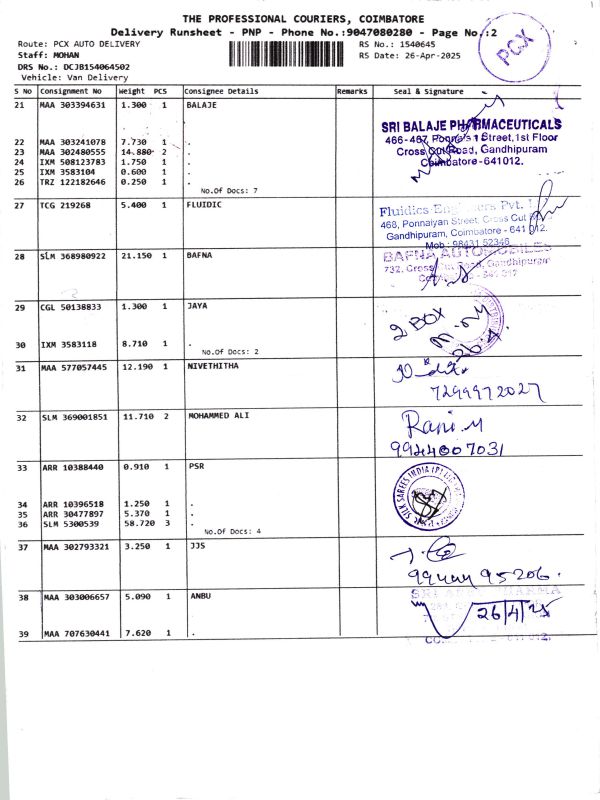 THE PROFESSIONAL COURIERS, COIMBATORE
Delivery Runsheet - PNP - Phone No.:9047080280 - Page No.:2
Route: PCX AUTO DELIVERY
RS No.: 1540645
PCX
Staff: MOHAN
RS Date: 26-Apr-2025
DRS No.: DCJB154064502
Vehicle: Van Delivery
S NO Consignment No Weight PCS Consignee Details Remarks Seal & Signature
21 MAA 303394631 1.300 1 BALAJE
SRI BALAJE PHARMACEUTICALS
466-467, Ponnaian Street, 1st Floor
Cross Cut Road, Gandhipuram
Coimbatore - 641012.
22 MAA 303241078 7.730 1 .
23 MAA 302480555 14.880 2 .
24 IXM 508123783 1.750 1 .
25 IXM 3583104 0.600 1 .
26 TRZ 122182646 0.250 1 .
No.Of Docs: 7
27 TCG 219268 5.400 1 FLUIDIC
Fluidics Engineers Pvt.
468, Ponnaiyan Street, Cross Cut
Gandhipuram, Coimbatore - 641 012.
Mob : 98431 52346
28 SLM 368980922 21.150 1 BAFNA
BAFNA AUTOMOBILES
732, Cross Cut Road, Gandhipuram
29 CGL 50138833 1.300 1 JAYA
2 BOX
30 IXM 3583118 8.710 1 .
No.Of Docs: 2
31 MAA 577057445 12.190 1 NIVETHITHA
7299972027
32 SLM 369001851 11.710 2 MOHAMMED ALI
Rani.M
9944007031
33 ARR 10388440 0.910 1 PSR
SILK SAREES INDIA (P) LTD
34 ARR 10396518 1.250 1 .
35 ARR 30477897 5.370 1 .
36 SLM 5300539 58.720 3 .
No.Of Docs: 4
37 MAA 302793321 3.250 1 JJS
38 MAA 303006657 5.090 1 ANBU
26/4/25
39 MAA 707630441 7.620 1 .